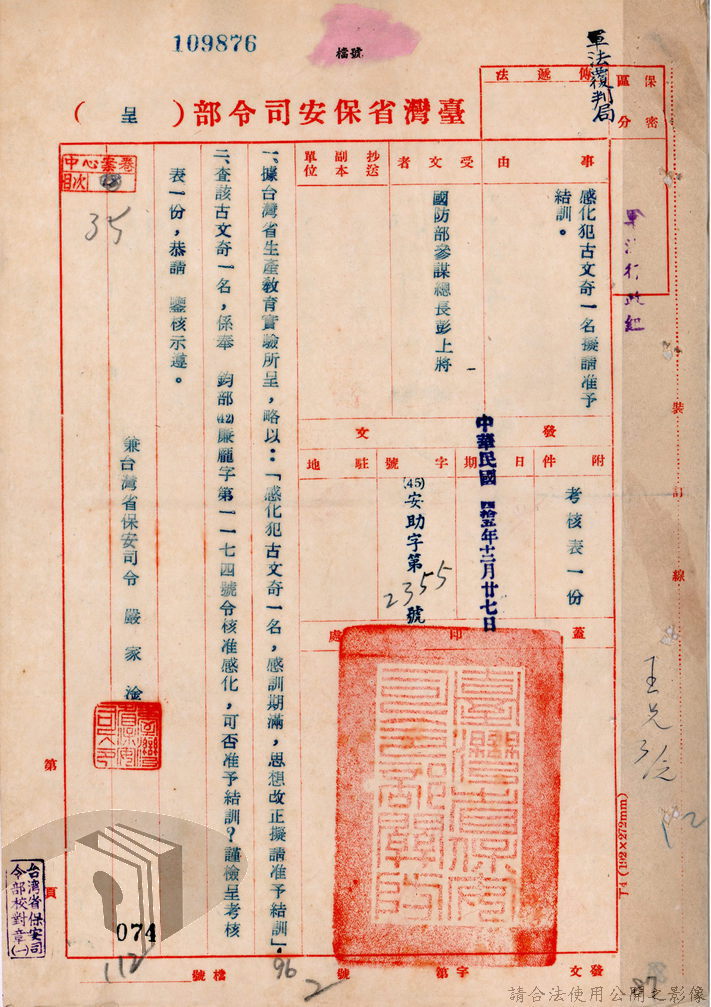 109876
檔號
軍法覆判局
保密
區分
傳遞法
臺灣省保安司令部（呈）
事由
感化犯古文奇一名擬請准予
結訓。
受文者
國防部參謀總長彭上將
抄送
副本
單位
發文
附件
考核表一份
日期
中華民國四拾五年十二月廿七日
字號
(45)安助字第2355號
駐地
蓋印處
臺灣省保安司令部關防
一、據台灣省生產教育實驗所呈，略以：「感化犯古文奇一名，感訓期滿，思想改正擬請准予結訓」。
二、查該古文奇一名，係奉　鈞部(42)廉龐字第一一七四號令核准感化，可否准予結訓？謹檢呈考核
表一份，恭請　鑒核示遵。
兼台灣省保安司令　嚴家淦
中心案卷
目次
35
第
頁
074
112
台灣省保安司
令部校對章(一)
軍法行政組
裝訂線
T4 (192×272mm)
發文
字第
號
檔號
96
2
87
請合法使用公開之影像